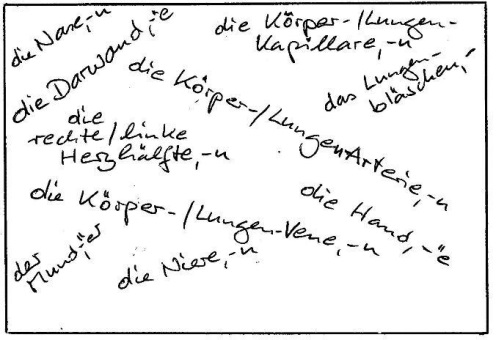 die Nase,-n
die Darwand,-̈e
die Körper-/Lungen-
Kapillare,-n
das Lungen-
bläschen,-
die Körper-/LungenArterie,-n
die
rechte/linke
Herzhälfte,-n
die Körper-/Lungen-Vene,-n
die Hand,-̈e
der
Mund,-̈er
die Niere,-n